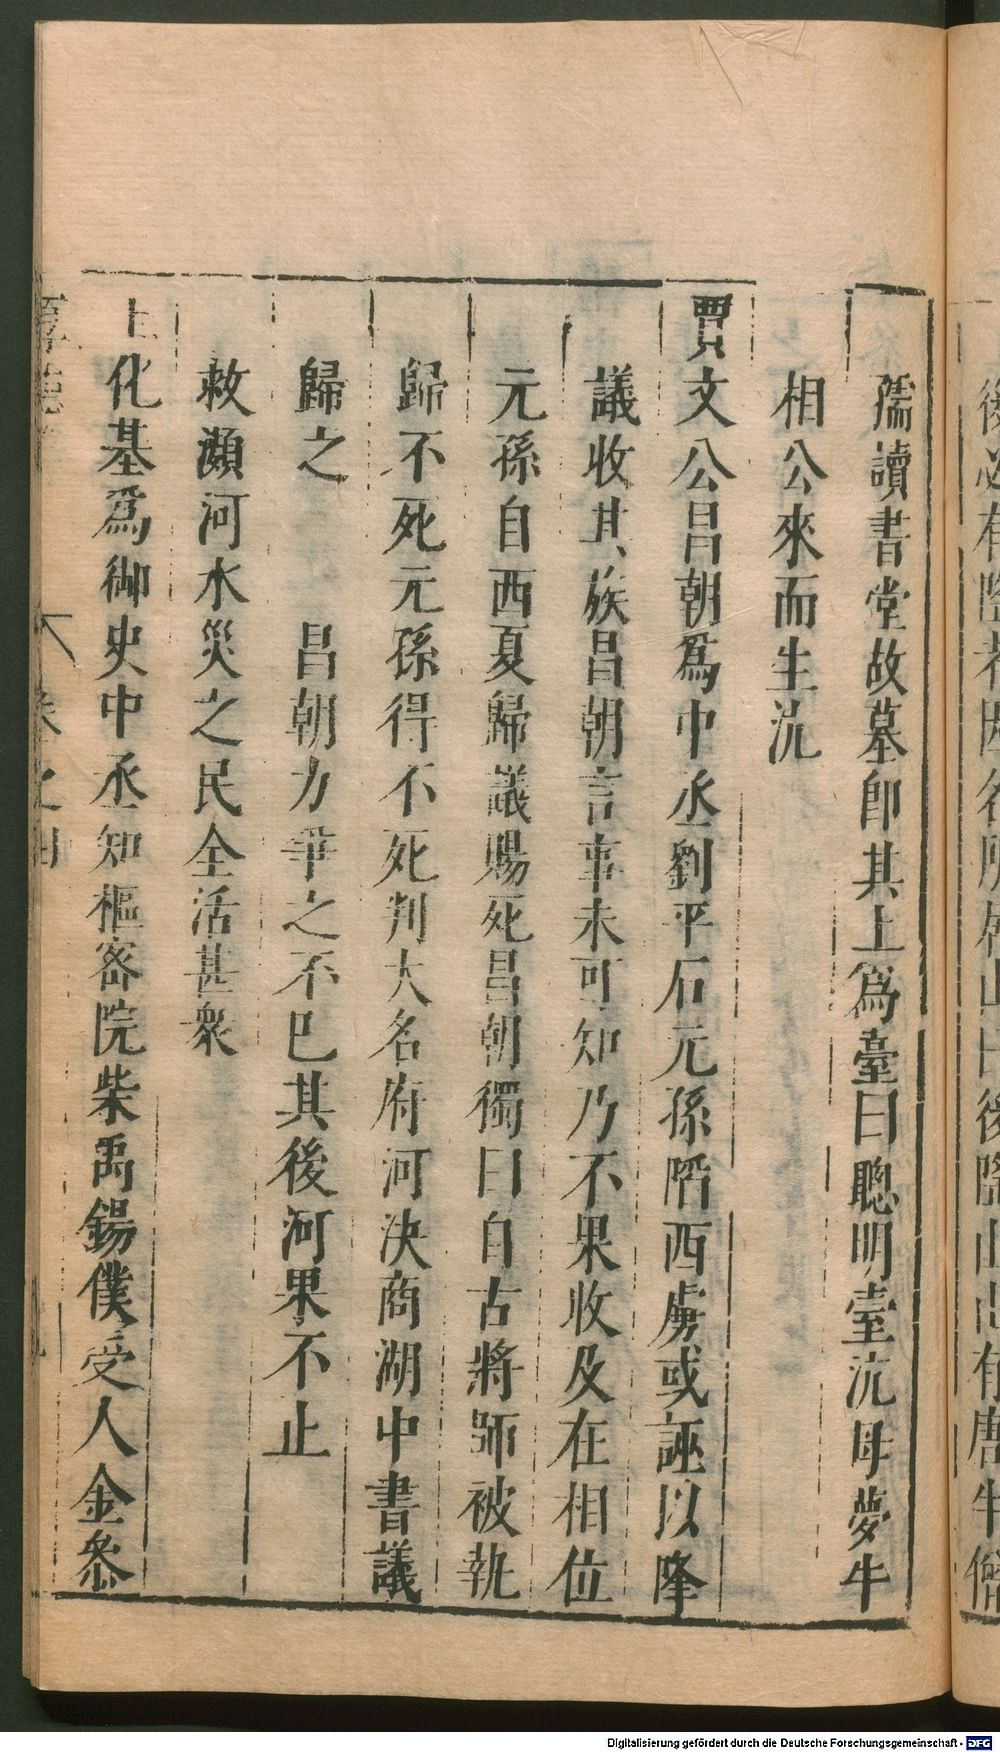 後必有
孺讀書堂故墓卽其上爲臺曰聰明臺沆母夢牛
相公來而生沆
賈文公昌朝爲中丞劉平石元孫陷西虜或誣以降
議收其族昌朝言事未可知乃不果收及在相位
元孫自西夏歸議賜死昌朝獨曰自古將師被執
歸不死元孫得不死判大名府河決商湖中書議
歸之　昌朝力爭之不巳其後河果不止
救瀕河水災之民全活甚衆
上化基爲御史中丞知樞密院柴禹錫僕受人金叅
Digitalisierung gefördert durch die Deutsche Forschungsgemeinschaft - DFG